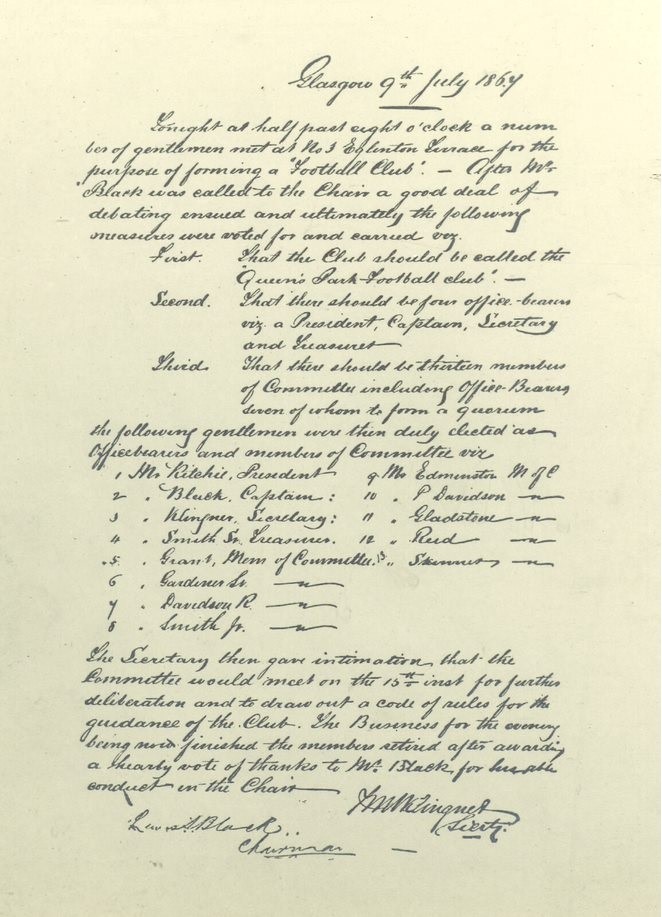 Glasgow 9th July 1867
Tonight at half past eight o'clock a num
ber of gentlemen met at No 3 Eglinton Terrace for the
purpose of forming a "Football Club". — After Mr
Black was called to the Chair a good deal of
debating ensued and ultimately the following
measures were voted for and carried viz.
First. That the Club should be called the
"Queen's Park Football club". —
Second. That there should be four office-bearers
viz. a President, Captain, Secretary
and Treasurer
Third. That there should be thirteen members
of Committee including Office-Bearers
seven of whom to form a quorum
the following gentlemen were then duly elected as
Officebearers and members of Committee viz
1 Mr Ritchie, President 9 Mr Edmiston M of C
2 " Black, Captain: 10 " P Davidson — " —
3 " Klingner, Secretary: 11 " Gladstone — " —
4 " Smith Sr. Treasurer. 12 " Reid — " —
5 " Grant, Mem of Committee. 13 " Skinner — " —
6 " Gardiner Sr. — " —
7 " Davidson R. — " —
8 " Smith Jr. — " —
The Secretary then gave intimation that the
Committee would meet on the 15th inst for further
deliberation and to draw out a code of rules for the
guidance of the Club. The Business for the evening
being now finished the members retired after awarding
a hearty vote of thanks to Mr. Black for his able
conduct in the Chair
Klingner
Secrty.
Lewis Black
Chairman —